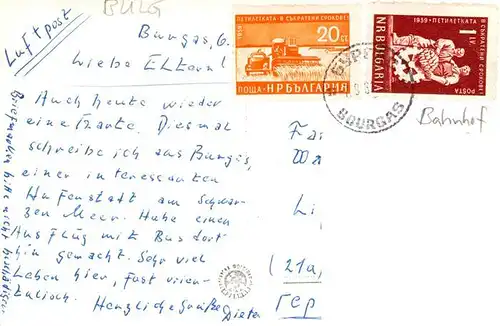 BULG
Luftpost
Burgas, 6.
Liebe Eltern!
Auch heute wieder
eine Karte. Diesmal
schreibe ich aus Burgas,
einer interessanten
Hafenstadt am Schwar-
zen Meer. Habe einen
Ausflug mit Bus dort
hin gemacht. Sehr viel
Leben hier, fast orien-
talisch.
Herzliche Grüße Dieter
Briefmarken bitte nicht beschädigen
ПЕТИЛЕТКАТА - В СЪКРАТЕНИ СРОКОВЕ!
1959
20 СТ.
ПОЩА НР БЪЛГАРИЯ
1959 ПЕТИЛЕТКАТА - В СЪКРАТЕНИ СРОКОВЕ!
1 ЛВ.
NR BULGARIA
POSTA
БУРГ
BOURGAS
Bahnhof
Fa
Li
(21a,
Гер